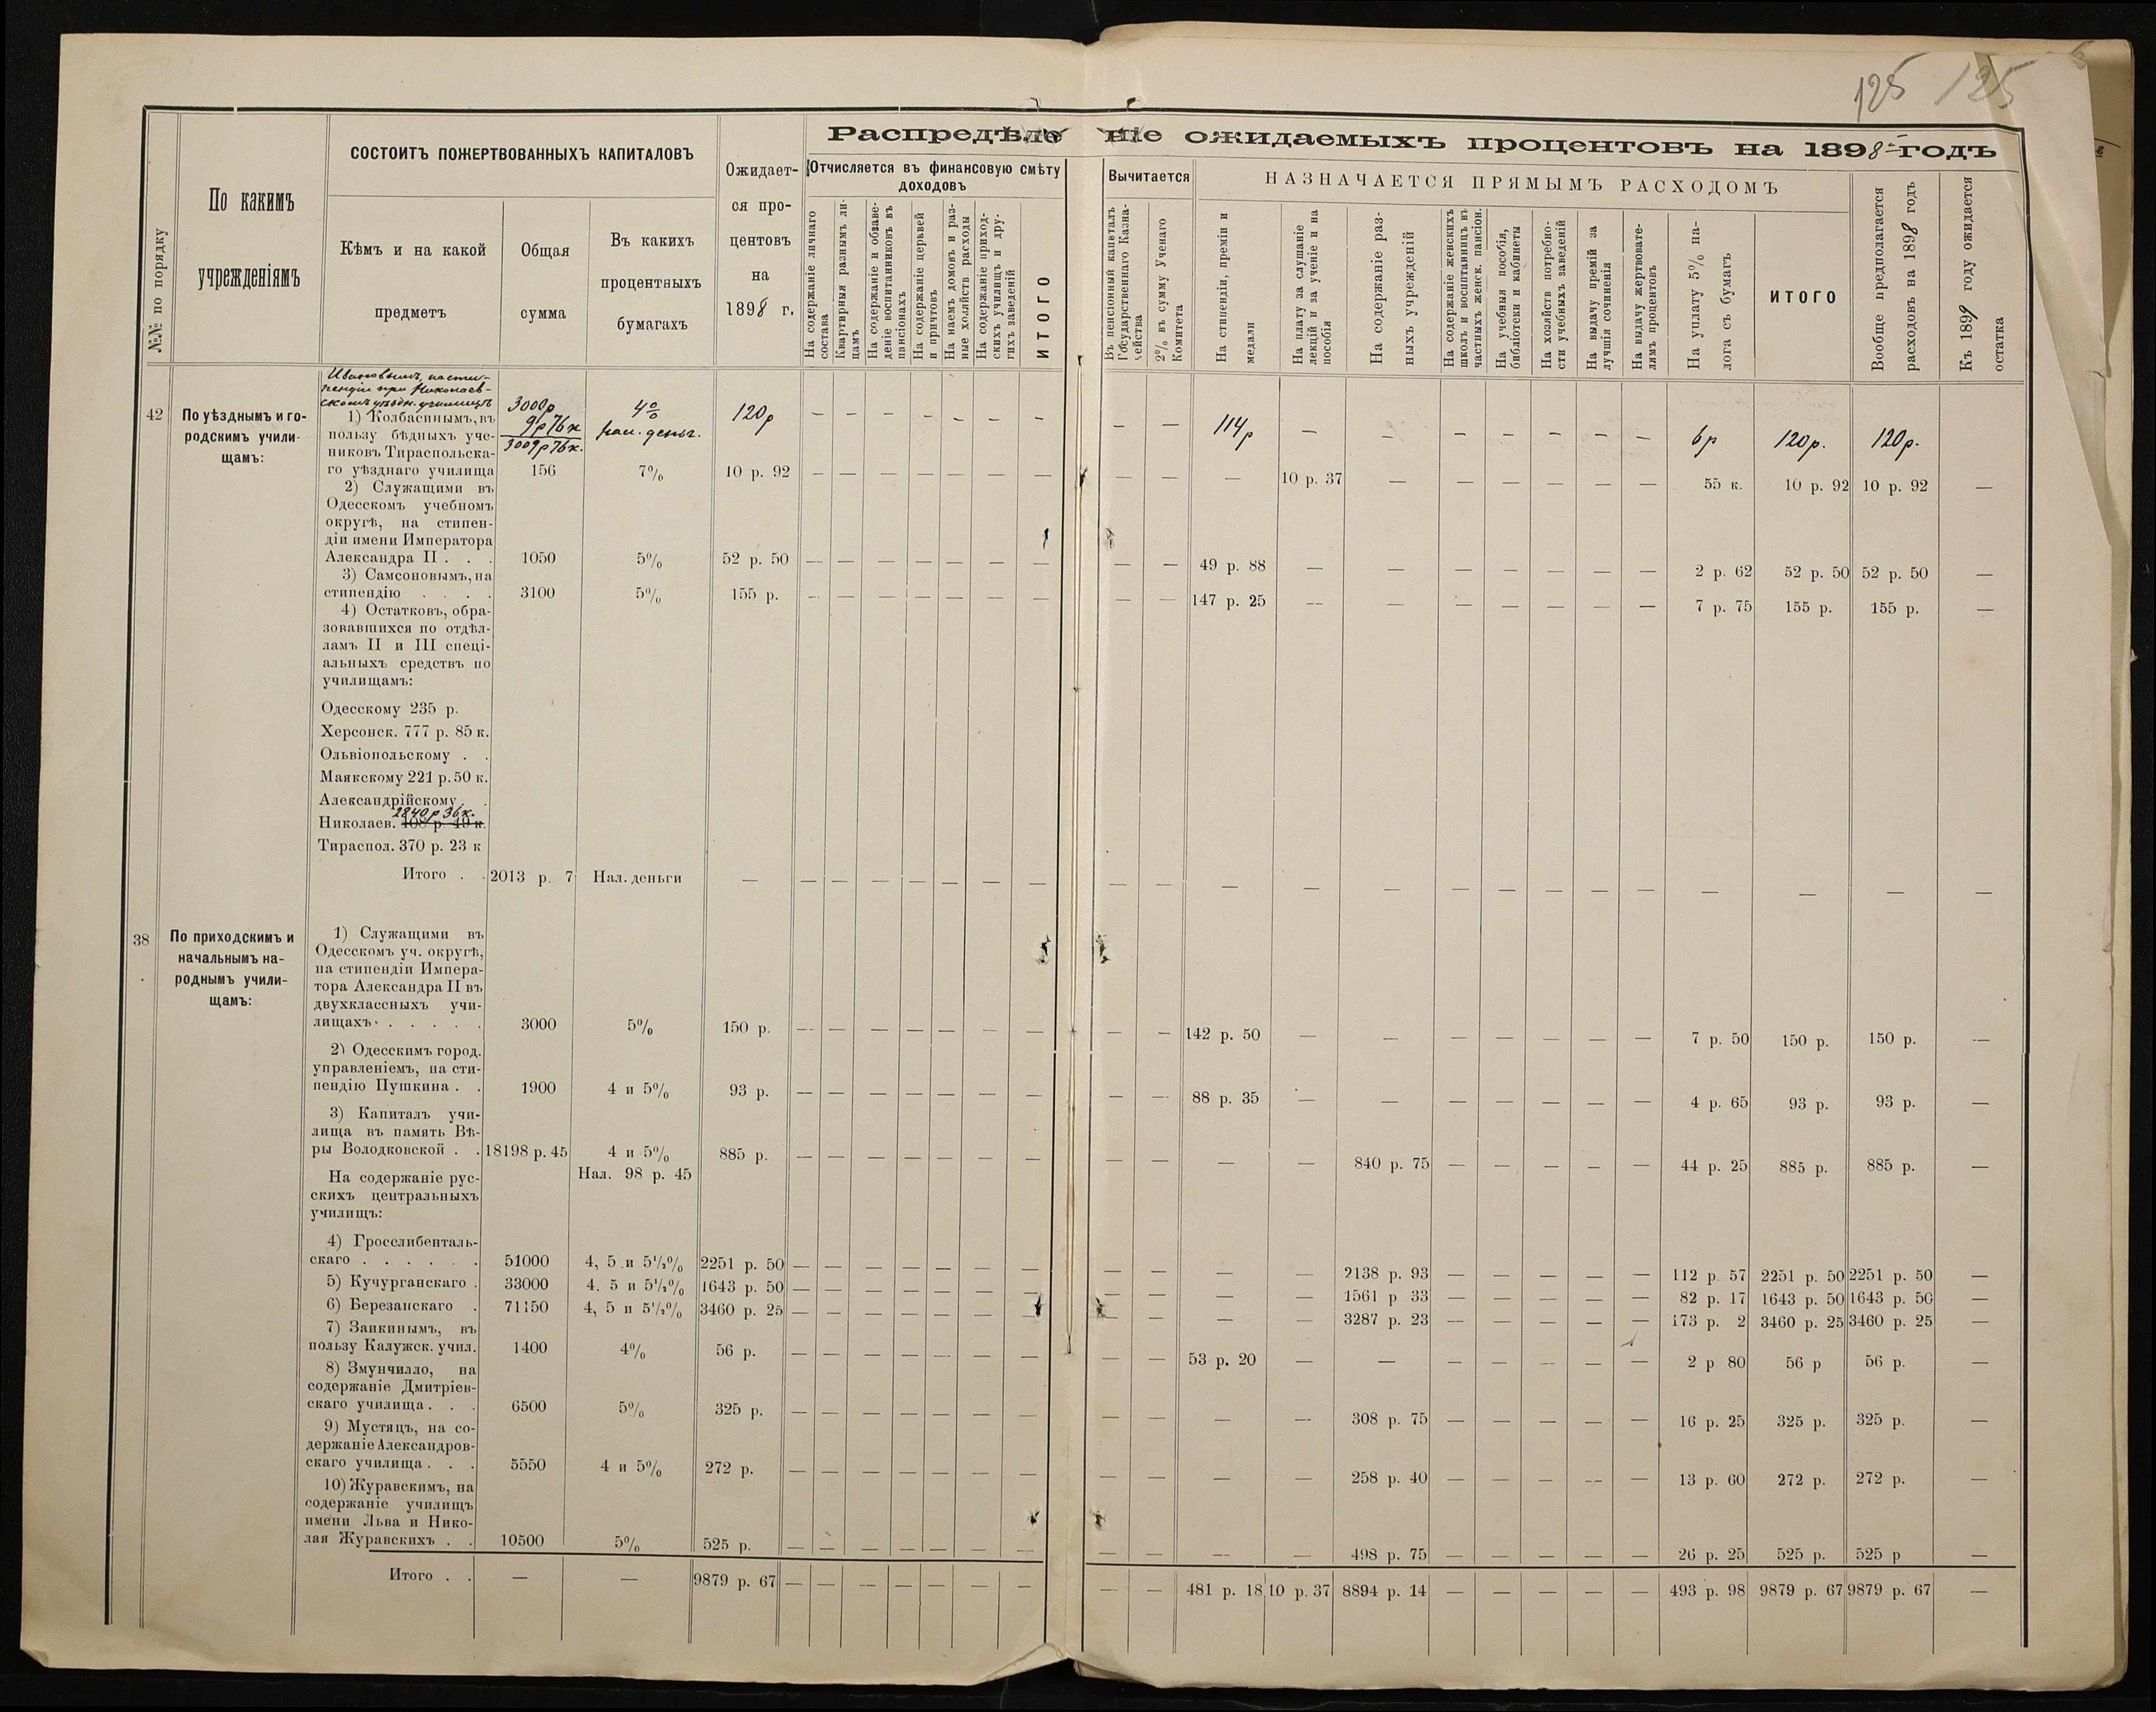 125 125
Распредѣле ніе ожидаемыхъ процентовъ на 1898 годъ
№№ по порядку
По какимъ
учрежденіямъ
СОСТОИТЪ ПОЖЕРТВОВАННЫХЪ КАПИТАЛОВЪ
Кѣмъ и на какой
предметъ
Общая
сумма
Въ какихъ
процентныхъ
бумагахъ
Ожидает-
ся про-
центовъ
на
1898 г.
Отчисляется въ финансовую смѣту
доходовъ
На содержаніе личнаго
состава
Квартирныя разнымъ ли-
цамъ
На содержаніе и обзаве-
деніе воспитанниковъ въ
пансіонахъ
На содержаніе церквей
и причтовъ
На наемъ домовъ и раз-
ные хозяйств. расходы
На содержаніе приход-
скихъ училищъ и дру-
гихъ заведеній
ИТОГО
Вычитается
Въ пенсіонный капиталъ
Государственнаго Казна-
чейства
2% въ сумму Ученаго
Комитета
НАЗНАЧАЕТСЯ ПРЯМЫМЪ РАСХОДОМЪ
На стипендіи, преміи и
медали
На плату за слушаніе
лекцій и за ученіе и на
пособія
На содержаніе раз-
ныхъ учрежденій
На содержаніе женскихъ
школъ и воспитанницъ въ
частныхъ женск. пансіон.
На учебныя пособія,
библіотеки и кабинеты
На хозяйств потребно-
сти учебныхъ заведеній
На выдачу премій за
лучшія сочиненія
На выдачу жертвовате-
лямъ процентовъ
На уплату 5% на-
лога съ бумагъ
ИТОГО
Вообще предполагается
расходовъ на 1898 годъ
Къ 1899 году ожидается
остатка
Ивановымъ, на сти-
пендіи при Николаев-
скомъ уѣздн. училищѣ
3000р
9р76к
3009р76к.
4%
нал. деньг.
120р — — — — — — — — — 114р — — — — — — — 6р 120р. 120р.
42 По уѣзднымъ и го-
родскимъ учили-
щамъ:
1) Колбасинымъ, въ
пользу бѣдныхъ уче-
никовъ Тираспольска-
го уѣзднаго училища 156 7% 10 р. 92 — — — — — — — — — — 10 р. 37 — — — — — — 55 к. 10 р. 92 10 р. 92 —
2) Служащими въ
Одесскомъ учебномъ
округѣ, на стипен-
діи имени Императора
Александра II . . . 1050 5% 52 р. 50 — — — — — — — — — 49 р. 88 — — — — — — — 2 р. 62 52 р. 50 52 р. 50 —
3) Самсоновымъ, на
стипендію . . . . 3100 5% 155 р. — — — — — — — — — 147 р. 25 — — — — — — — 7 р. 75 155 р. 155 р. —
4) Остатковъ, обра-
зовавшихся по отдѣл-
ламъ II и III спеці-
альныхъ средствъ по
училищамъ:
Одесскому 235 р.
Херсонск. 777 р. 85 к.
Ольвіопольскому . .
Маякскому 221 р. 50 к.
Александрійскому . .
2840р 36к.
Николаев. 408 р 49 к.
Тираспол. 370 р. 23 к
Итого . . 2013 р. 7 Нал. деньги — — — — — — — — — — — — — — — — — — — — — —
38 По приходскимъ и
начальнымъ на-
роднымъ учили-
щамъ:
1) Служащими въ
Одесскомъ уч. округѣ,
на стипендіи Импера-
тора Александра II въ
двухклассныхъ учи-
лищахъ . . . . . 3000 5% 150 р. — — — — — — — — — 142 р. 50 — — — — — — — 7 р. 50 150 р. 150 р. —
2) Одесскимъ город.
управленіемъ, на сти-
пендію Пушкина . . 1900 4 и 5% 93 р. — — — — — — — — — 88 р. 35 — — — — — — — 4 р. 65 93 р. 93 р. —
3) Капиталъ учи-
лища въ память Вѣ-
ры Володковской . . 18198 р. 45 4 и 5% 885 р. — — — — — — — — — — — 840 р. 75 — — — — — 44 р. 25 885 р. 885 р. —
Нал. 98 р. 45
На содержаніе рус-
скихъ центральныхъ
училищъ:
4) Гросслибенталь-
скаго . . . . . . 51000 4, 5 и 5½% 2251 р. 50 — — — — — — — — — — — 2138 р. 93 — — — — — 112 р. 57 2251 р. 50 2251 р. 50 —
5) Кучурганскаго . 33000 4. 5 и 5½% 1643 р. 50 — — — — — — — — — — — 1561 р 33 — — — — — 82 р. 17 1643 р. 50 1643 р. 50 —
6) Березанскаго . 71150 4, 5 и 5½% 3460 р. 25 — — — — — — — — — — — 3287 р. 23 — — — — — 173 р. 2 3460 р. 25 3460 р. 25 —
7) Заикинымъ, въ
пользу Калужск. учил. 1400 4% 56 р. — — — — — — — — — 53 р. 20 — — — — — — — 2 р 80 56 р 56 р. —
8) Змунчилло, на
содержаніе Дмитріев-
скаго училища . . . 6500 5% 325 р. — — — — — — — — — — — 308 р. 75 — — — — — 16 р. 25 325 р. 325 р. —
9) Мустяцъ, на со-
держаніе Александров-
скаго училища . . . 5550 4 и 5% 272 р. — — — — — — — — — — — 258 р. 40 — — — — — 13 р. 60 272 р. 272 р. —
10) Журавскимъ, на
содержаніе училищъ
имени Льва и Нико-
лая Журавскихъ . . 10500 5% 525 р. — — — — — — — — — — — 498 р. 75 — — — — — 26 р. 25 525 р. 525 р —
Итого . . — — 9879 р. 67 — — — — — — — — — 481 р. 18 10 р. 37 8894 р. 14 — — — — — 493 р. 98 9879 р. 67 9879 р. 67 —